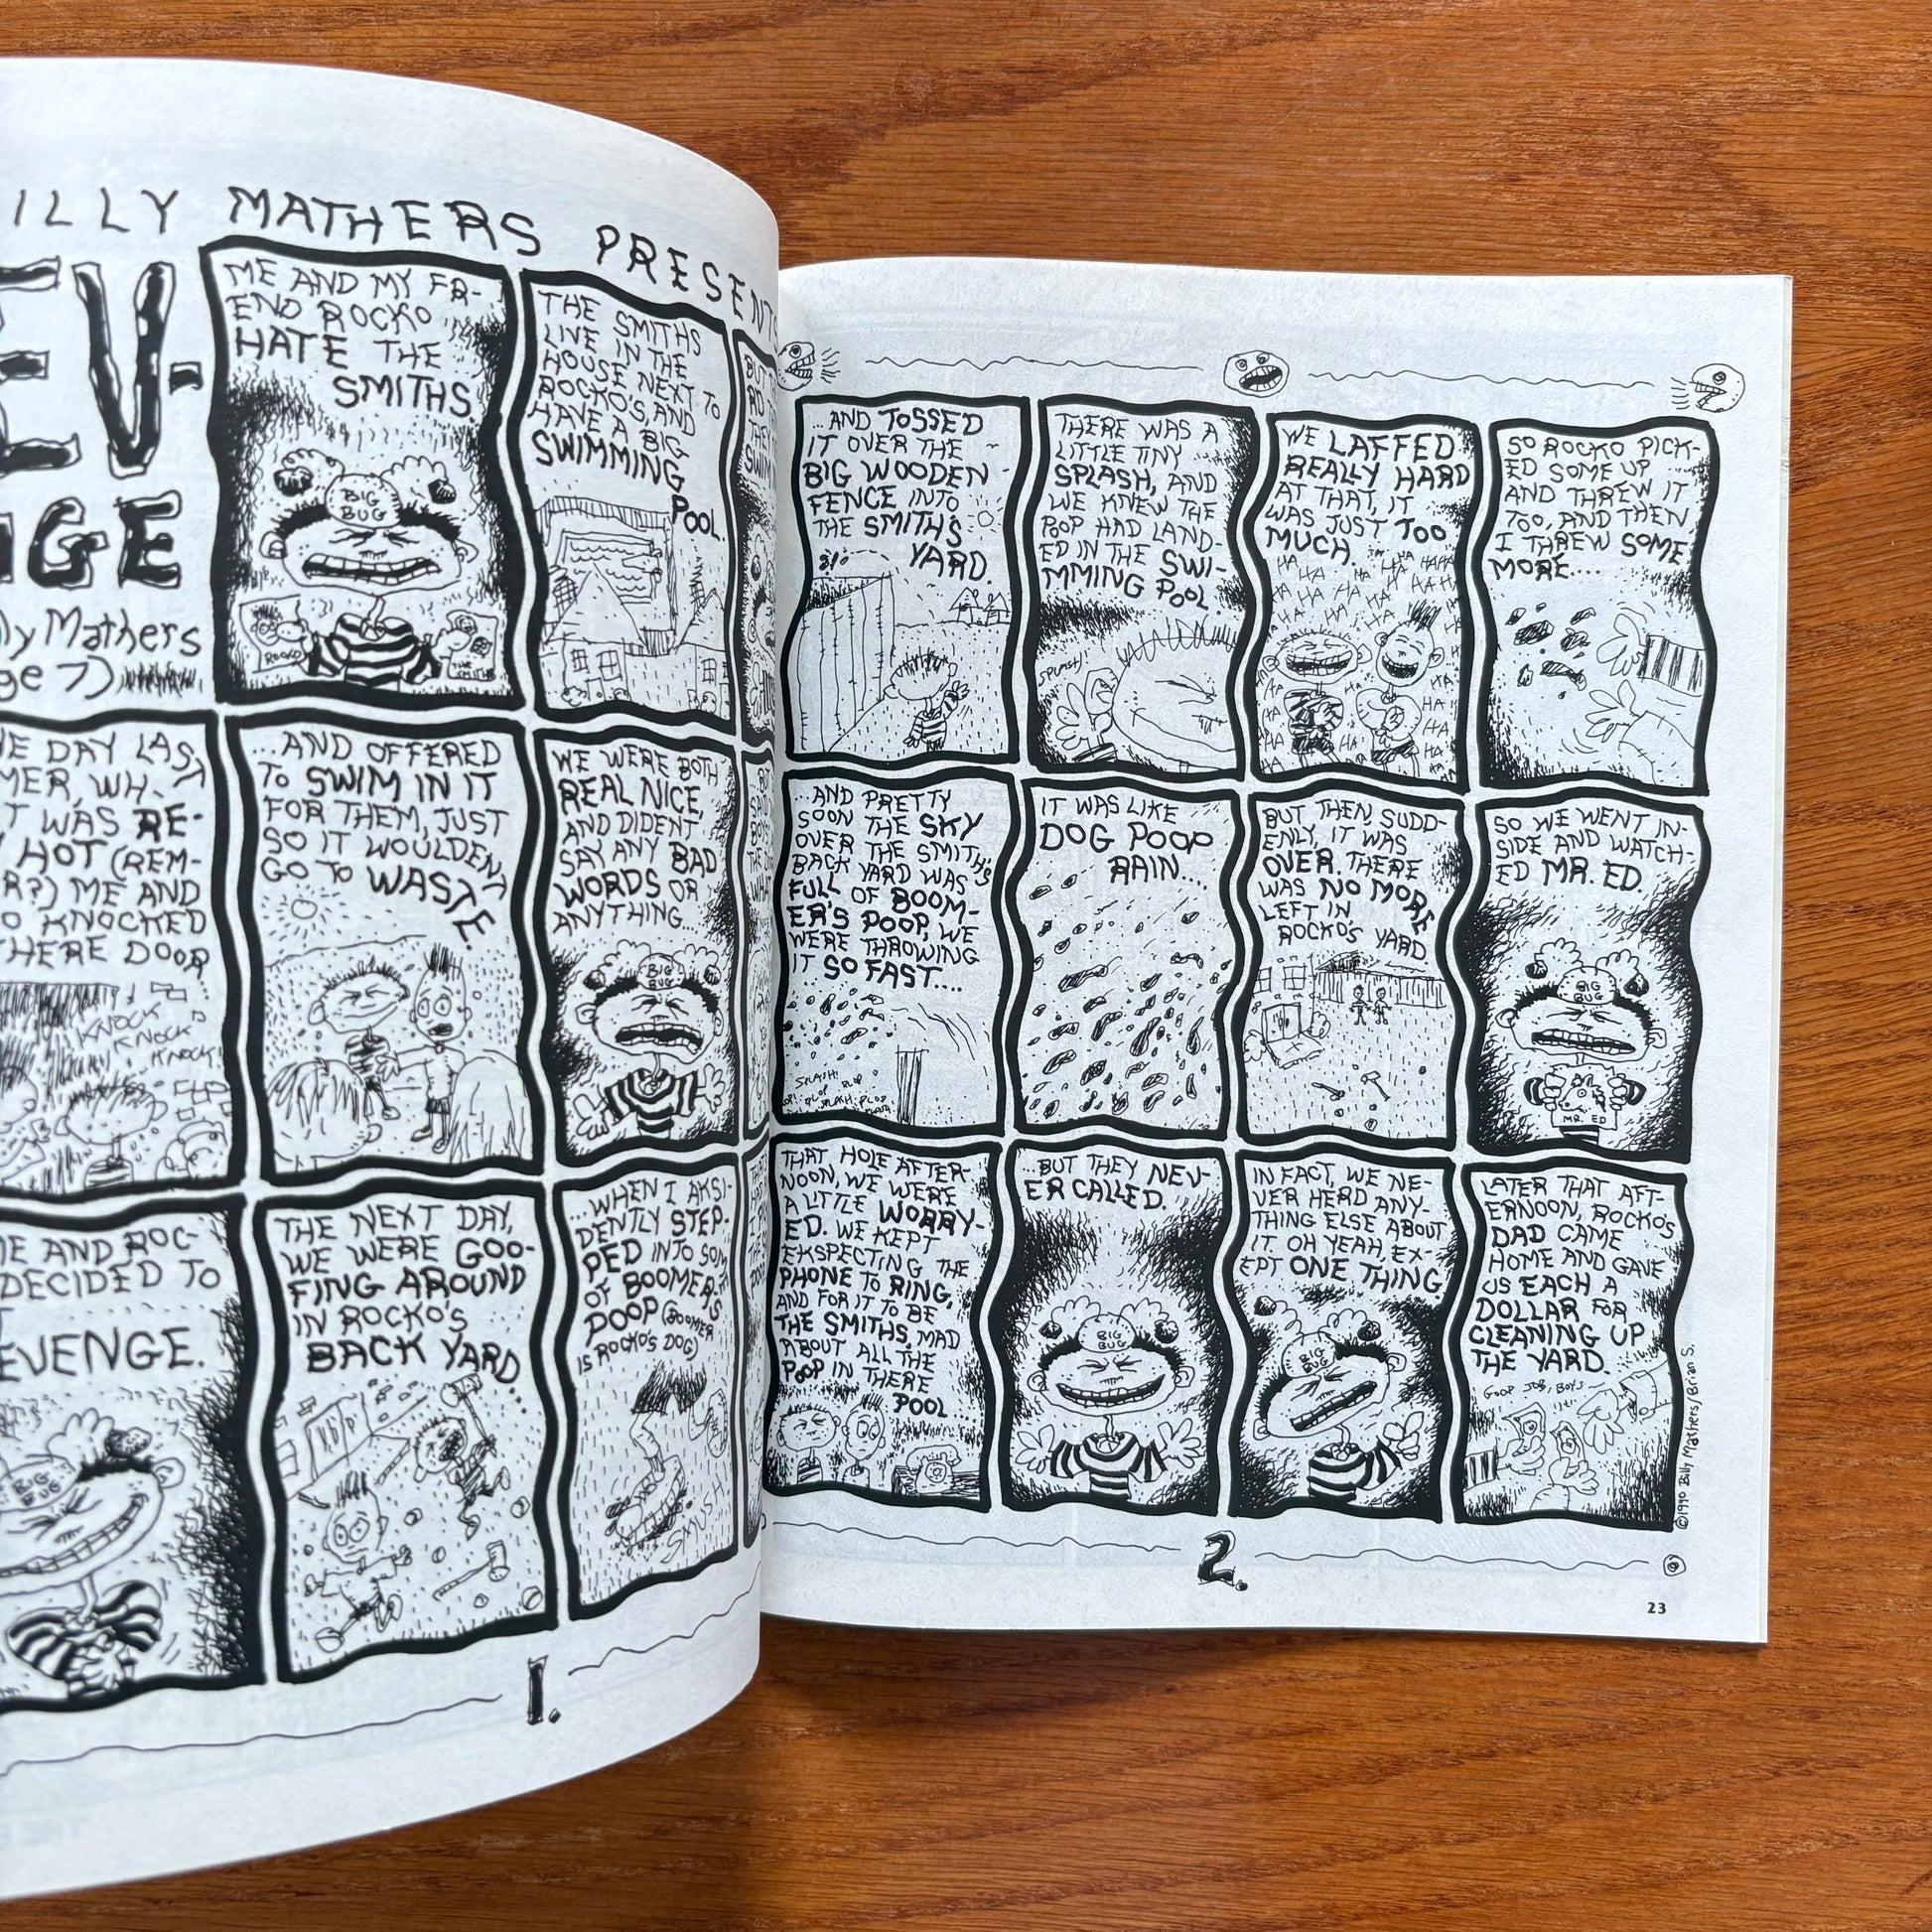 ILLY MATHERS PRESENTS
EV-
GE
y Mathers
ge 7)
ME AND MY FR-
END ROCKO
HATE THE
SMITHS
BIG
BUG
ROCKO
THE
SMITHS
THE SMITHS
LIVE IN THE
HOUSE NEXT TO
ROCKO'S, AND
HAVE A BIG
SWIMMING
POOL
BUT
SWIM
E DAY LAST
MER, WH-
T WAS RE-
Y HOT (REM-
R?) ME AND
O KNOCKED
THERE DOOR
KNOCK
KNOCK
KNOCK
...AND OFFERED
TO SWIM IN IT
FOR THEM, JUST
SO IT WOULDENT
GO TO WASTE.
WE WERE BOTH
REAL NICE
AND DIDENT
SAY ANY BAD
WORDS OR
ANYTHING...
BIG
BUG
E AND ROC-
DECIDED TO
EVENGE.
BIG
BUG
THE NEXT DAY,
WE WERE GOO-
FING AROUND
IN ROCKO'S
BACK YARD...
...WHEN I AKSI-
DENTLY STEP-
PED INTO SOM
OF BOOMERS
POOP (BOOMER
IS ROCKO'S DOG)
SMUSH
1.
...AND TOSSED
IT OVER THE
BIG WOODEN
FENCE INTO
THE SMITH'S
YARD.
THERE WAS A
LITTLE TINY
SPLASH, AND
WE KNEW THE
POOP HAD LAND-
ED IN THE SWI-
MMING POOL
SPLASH
WE LAFFED
REALLY HARD
AT THAT, IT
WAS JUST TOO
MUCH.
HA HA HA HAHA
HA HA HA HA HA
HA HA HA
HA HA
HA
HA HA
HA
HA
HA HA
SO ROCKO PICK-
ED SOME UP
AND THREW IT
TOO, AND THEN
I THREW SOME
MORE....
...AND PRETTY
SOON THE SKY
OVER THE SMITH'S
BACK YARD WAS
FULL OF BOOM-
ER'S POOP, WE
WERE THROWING
IT SO FAST....
SPLASH! PLOP
PLOP
SPLASH PLOP
IT WAS LIKE
DOG POOP
RAIN....
BUT THEN, SUDD-
ENLY, IT WAS
OVER. THERE
WAS NO MORE
LEFT IN
ROCKO'S YARD.
SO WE WENT IN-
SIDE AND WATCH-
ED MR. ED.
BIG
BUG
MR. ED
THAT HOLE AFTER-
NOON, WE WERE
A LITTLE WORRY-
ED. WE KEPT
EKSPECTING THE
PHONE TO RING,
AND FOR IT TO BE
THE SMITHS, MAD
ABOUT ALL THE
POOP IN THERE
POOL...
...BUT THEY NEV-
ER CALLED.
BIG
BUG
IN FACT, WE NE-
VER HERD ANY-
THING ELSE ABOUT
IT. OH YEAH, EX-
EPT ONE THING.
BIG
BUG
LATER THAT AFT-
ERNOON, ROCKO'S
DAD CAME
HOME AND GAVE
US EACH A
DOLLAR FOR
CLEANING UP
THE YARD.
GOOD JOB, BOYS
©1990 Billy Mathers/Brian S.
2.
23